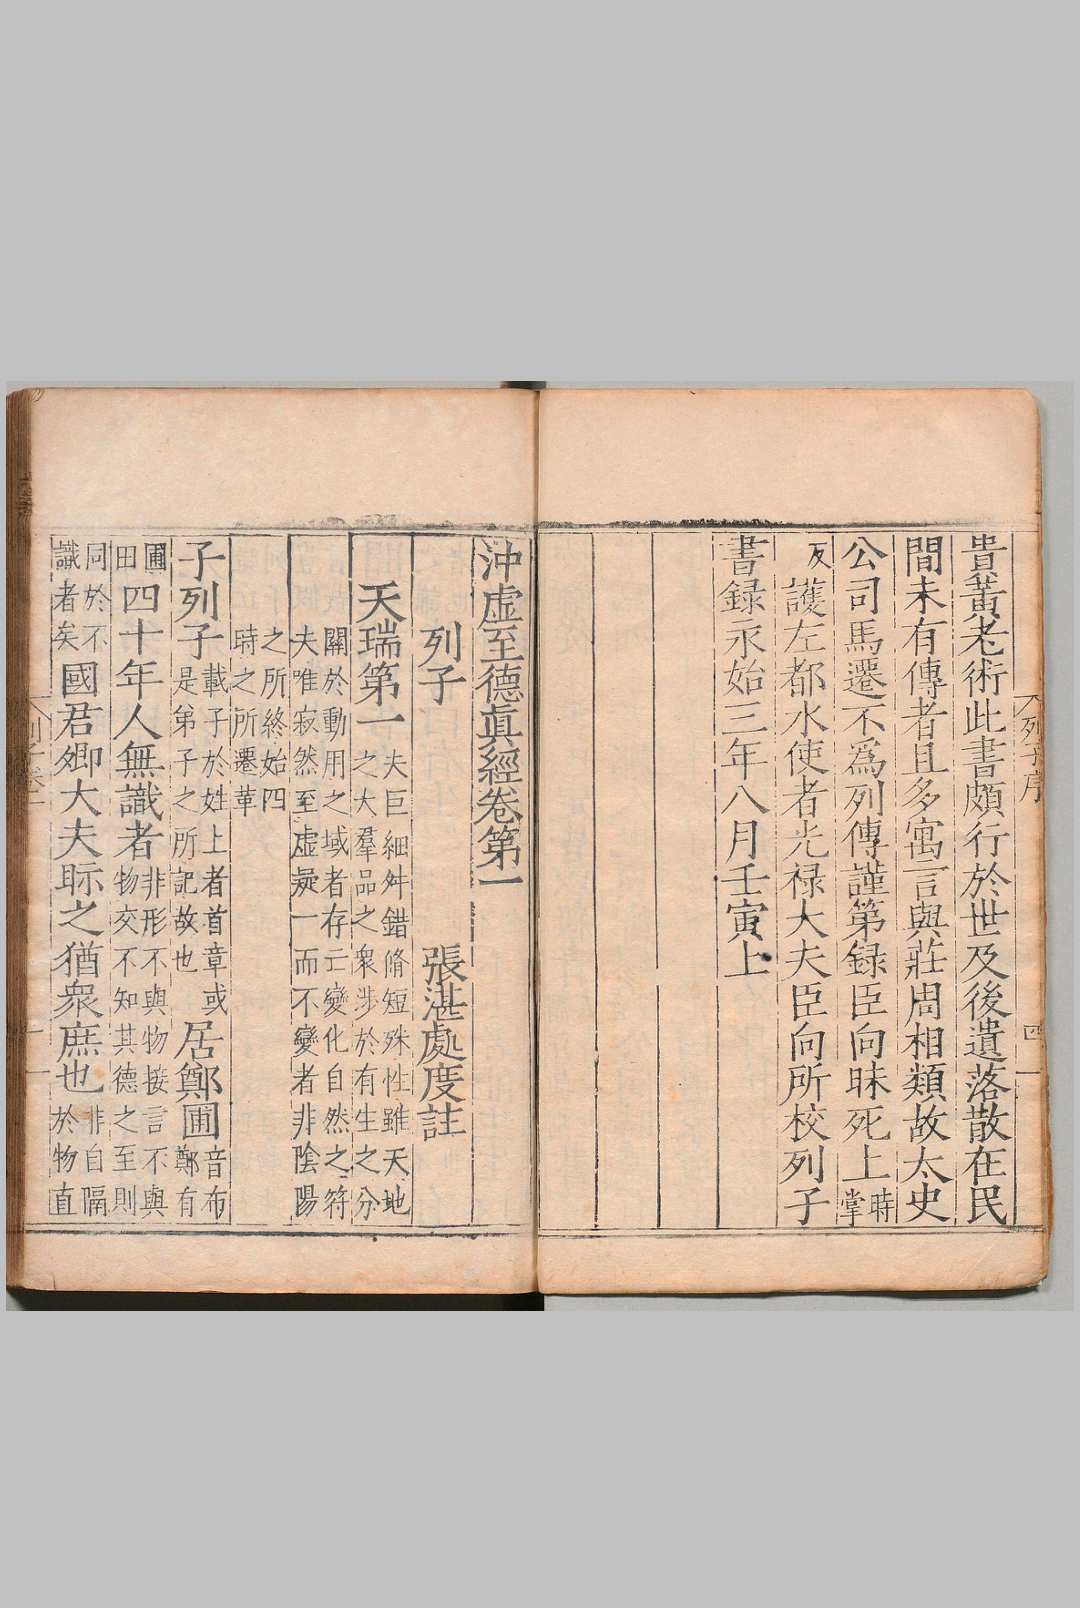 列子序 四
貴黃老術此書頗行於世及後遺落散在民
間未有傳者且多寓言與莊周相類故太史
公司馬遷不爲列傳謹第録臣向昧死上時掌
反護左都水使者光禄大夫臣向所校列子
書録永始三年八月壬寅上
沖虚至德眞經卷第一
列子 張湛處度註
天瑞第一夫巨細舛錯脩短殊性雖天地之大羣品之衆涉於有生之分
關於動用之域者存亡變化自然之符夫唯寂然至虚凝一而不變者非陰陽
之所終始四時之所遷革
子列子載子於姓上者首章或是弟子之所記故也居鄭圃音布鄭有
圃田四十年人無識者非形不與物接言不與物交不知其德之至則
同於不識者矣國君卿大夫眎之猶衆庶也非自隔於物直
列子卷一